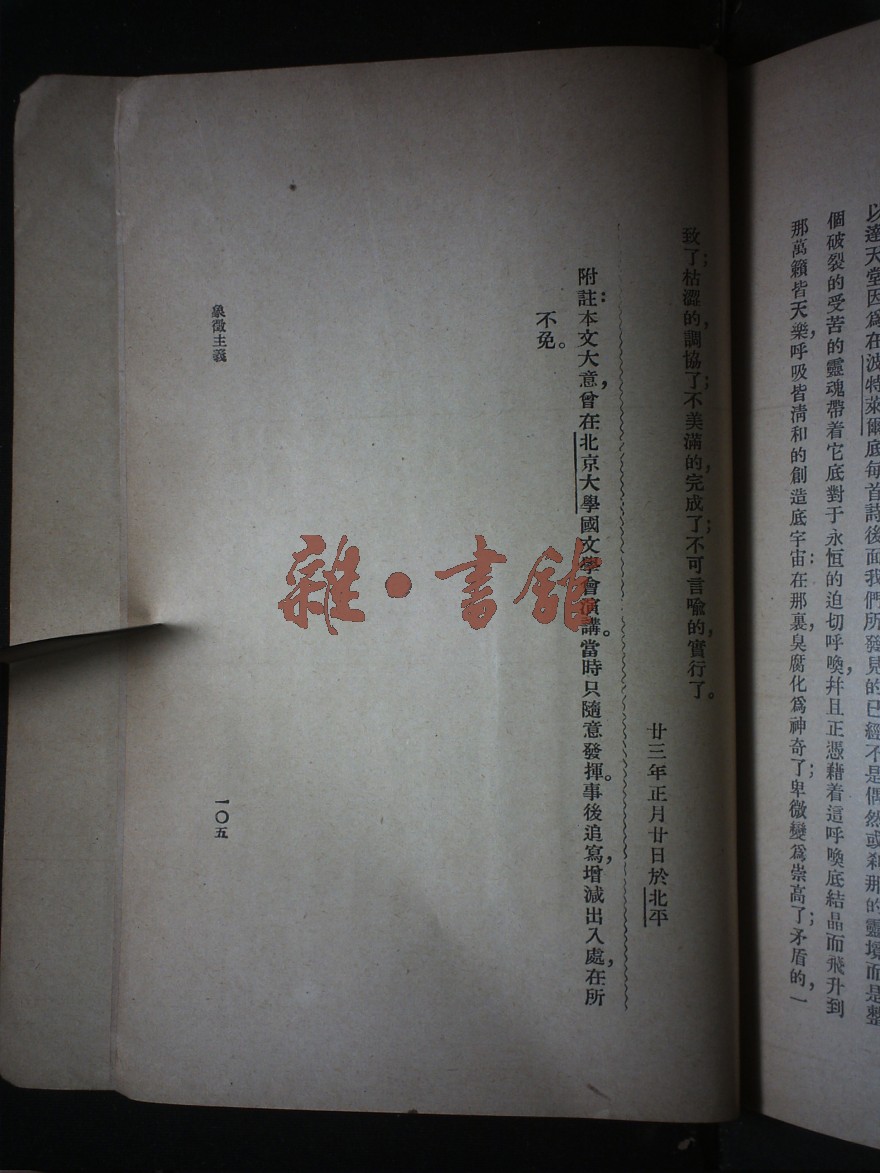 以達天堂因爲在波特萊爾底每首詩後面我們所發見的已經不是偶然或刹那的靈境而是整
個破裂的受苦的靈魂帶着它底對于永恒的迫切呼喚，幷且正憑藉着這呼喚底結晶而飛升到
那萬籟皆天樂，呼吸皆淸和的創造底宇宙：在那裏，臭腐化爲神奇了；卑微變爲崇高了；矛盾的，一
致了；枯澀的，調協了；不美滿的，完成了；不可言喩的，實行了。
廿三年正月廿日於北平
附註：本文大意，曾在北京大學國文學會演講。當時只隨意發揮。事後追寫，增減出入處，在所
不免。
象徵主義
一〇五
雜·書館